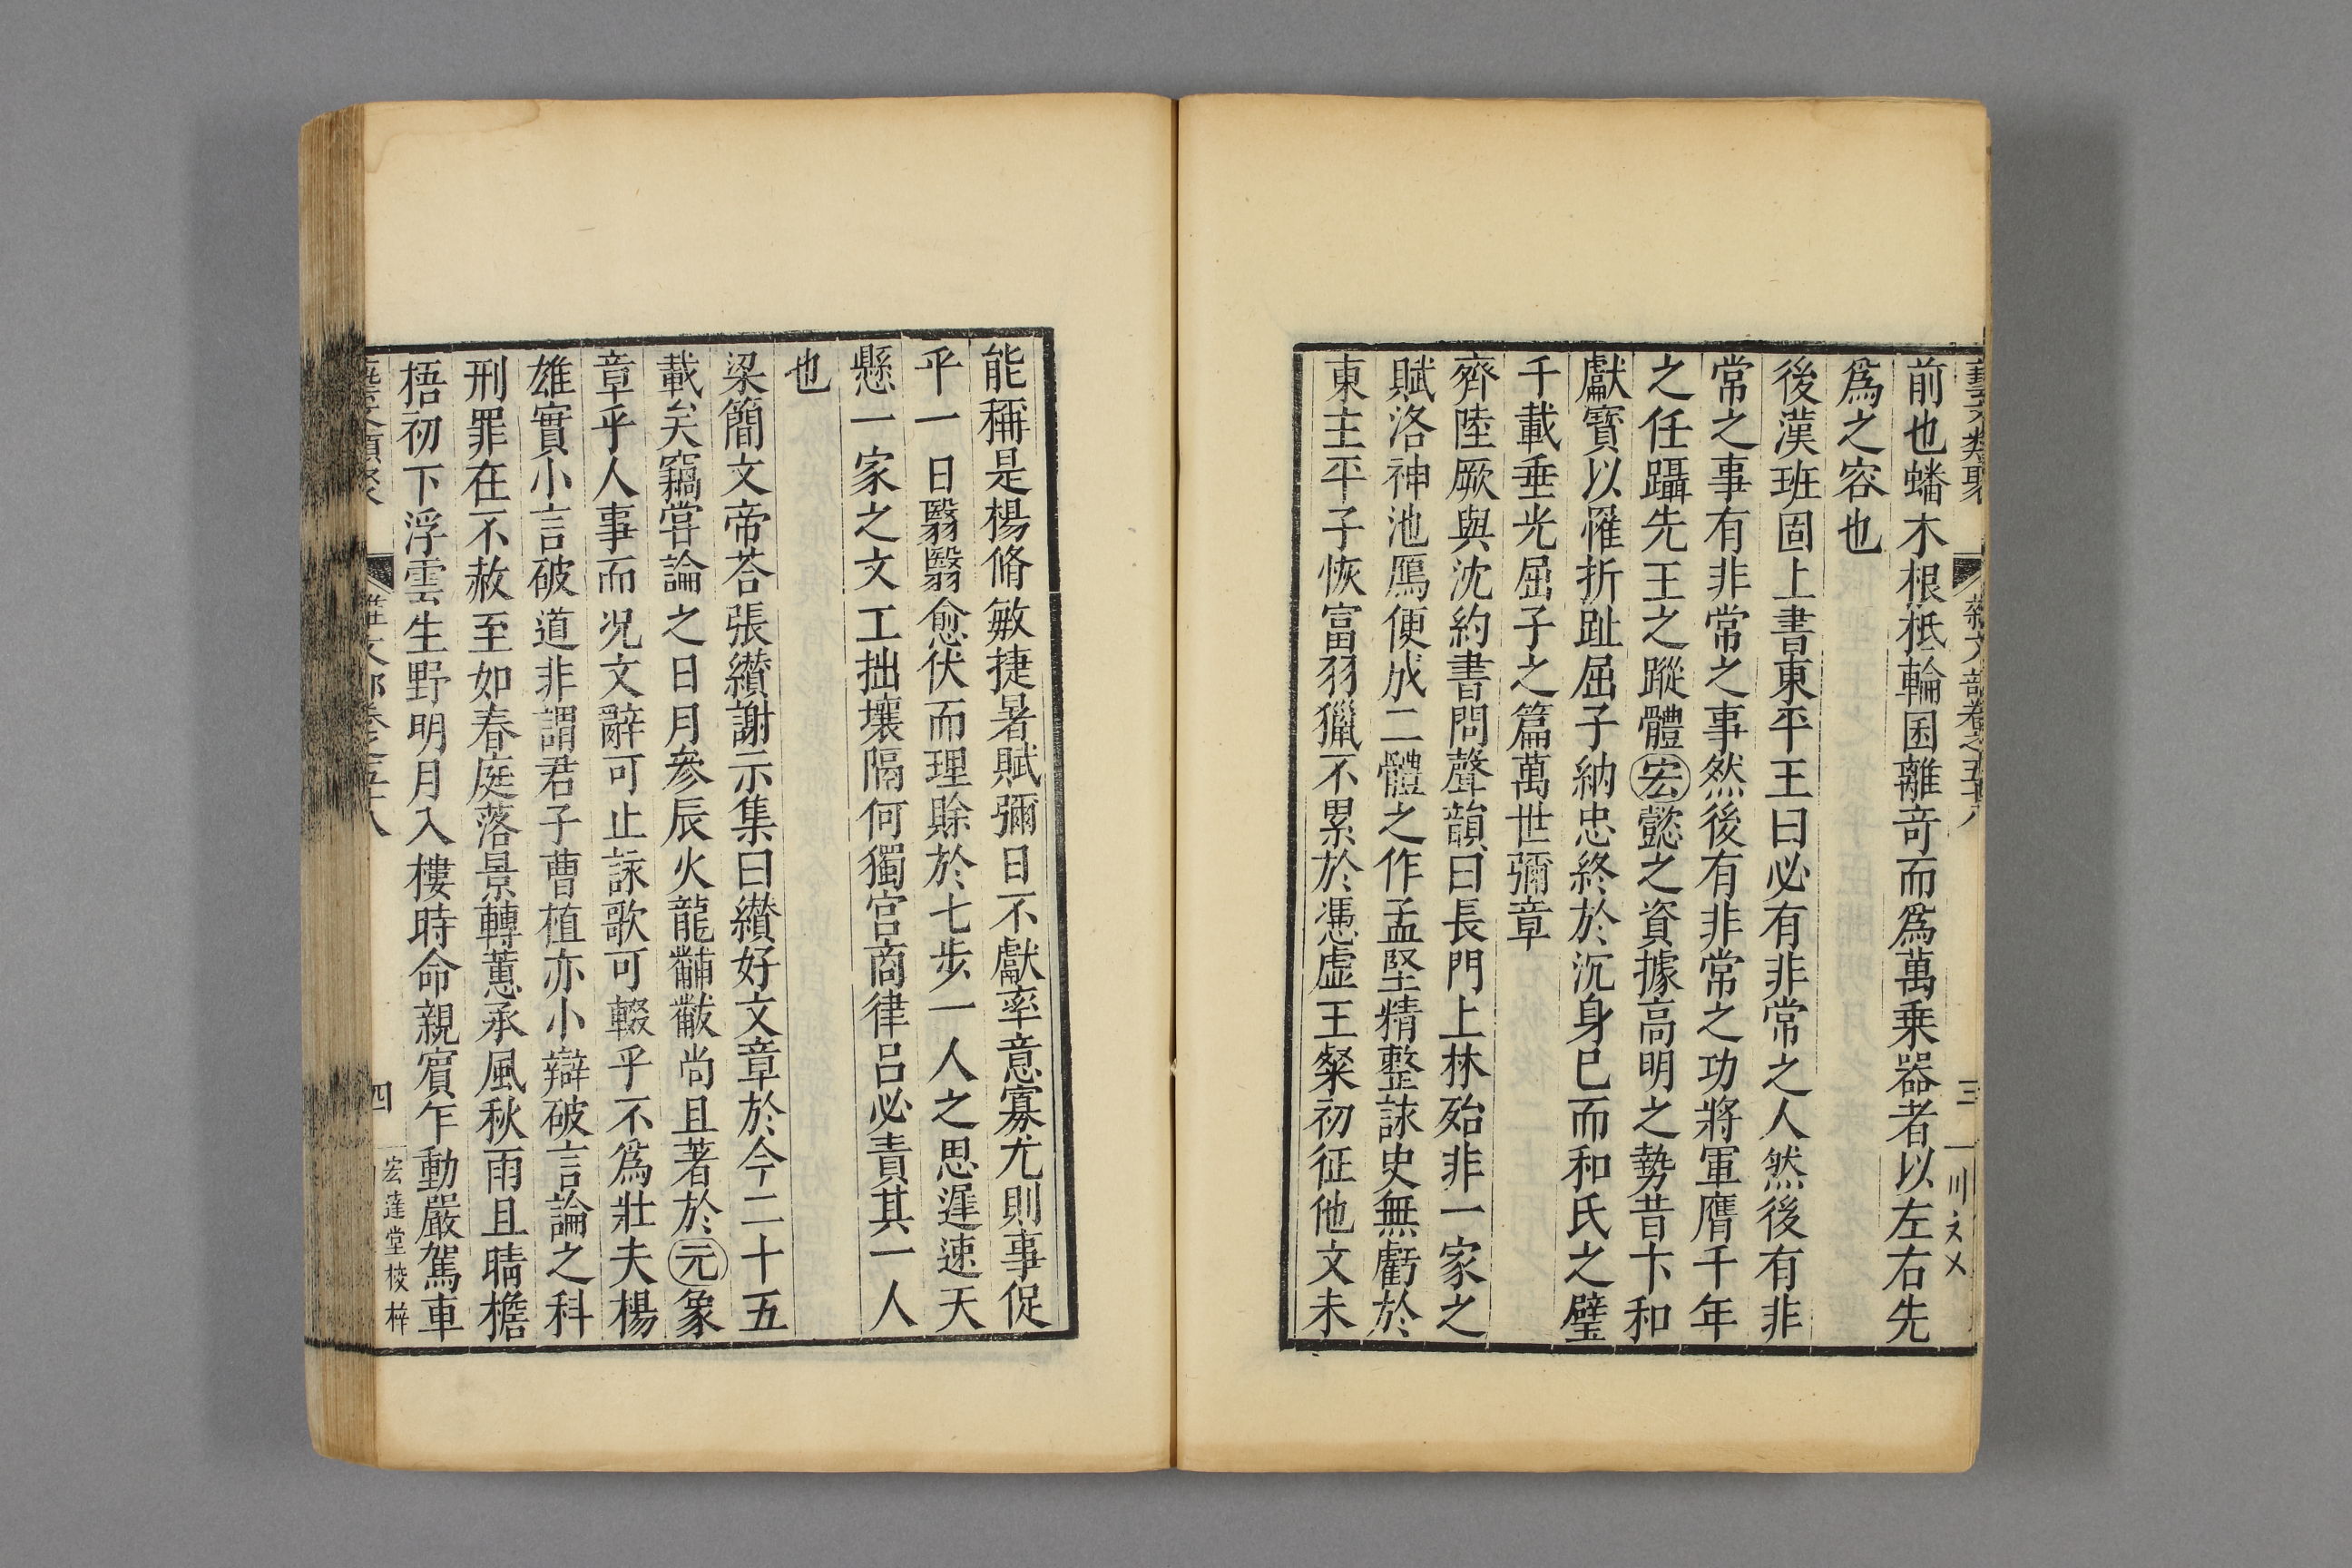 藝文類聚 雜文部卷之五十八 三
前也蟠木根柢輪囷離竒而爲萬乗器者以左右先
爲之容也
後漢班固上書東平王曰必有非常之人然後有非
常之事有非常之事然後有非常之功將軍膺千年
之任躡先王之蹤體宏懿之資據高明之勢昔卞和
獻寳以罹折趾屈子納忠終於沉身巳而和氏之璧
千載垂光屈子之篇萬世彌章
齊陸厥與沈約書問聲韻曰長門上林殆非一家之
賦洛神池鴈便成二體之作孟堅精整詠史無虧於
東主平子恢富羽獵不累於憑虛王粲初征他文未
能稱是楊脩敏捷暑賦彌日不獻率意寡尤則事促
乎一日翳翳愈伏而理賖於七步一人之思遲速天
懸一家之文工拙壤隔何獨宫商律吕必責其一人
也
梁簡文帝荅張纘謝示集曰纘好文章於今二十五
載矣竊甞論之日月參辰火龍黼黻尚且著於元象
章乎人事而况文辭可止詠歌可輟乎不爲壯夫楊
雄實小言破道非謂君子曹植亦小辯破言論之科
刑罪在不赦至如春庭落景轉蕙承風秋雨且晴檐
梧初下浮雲生野明月入樓時命親賓乍動嚴駕車
藝文類聚 雜文部卷之五十八 四
宏達堂棱梓